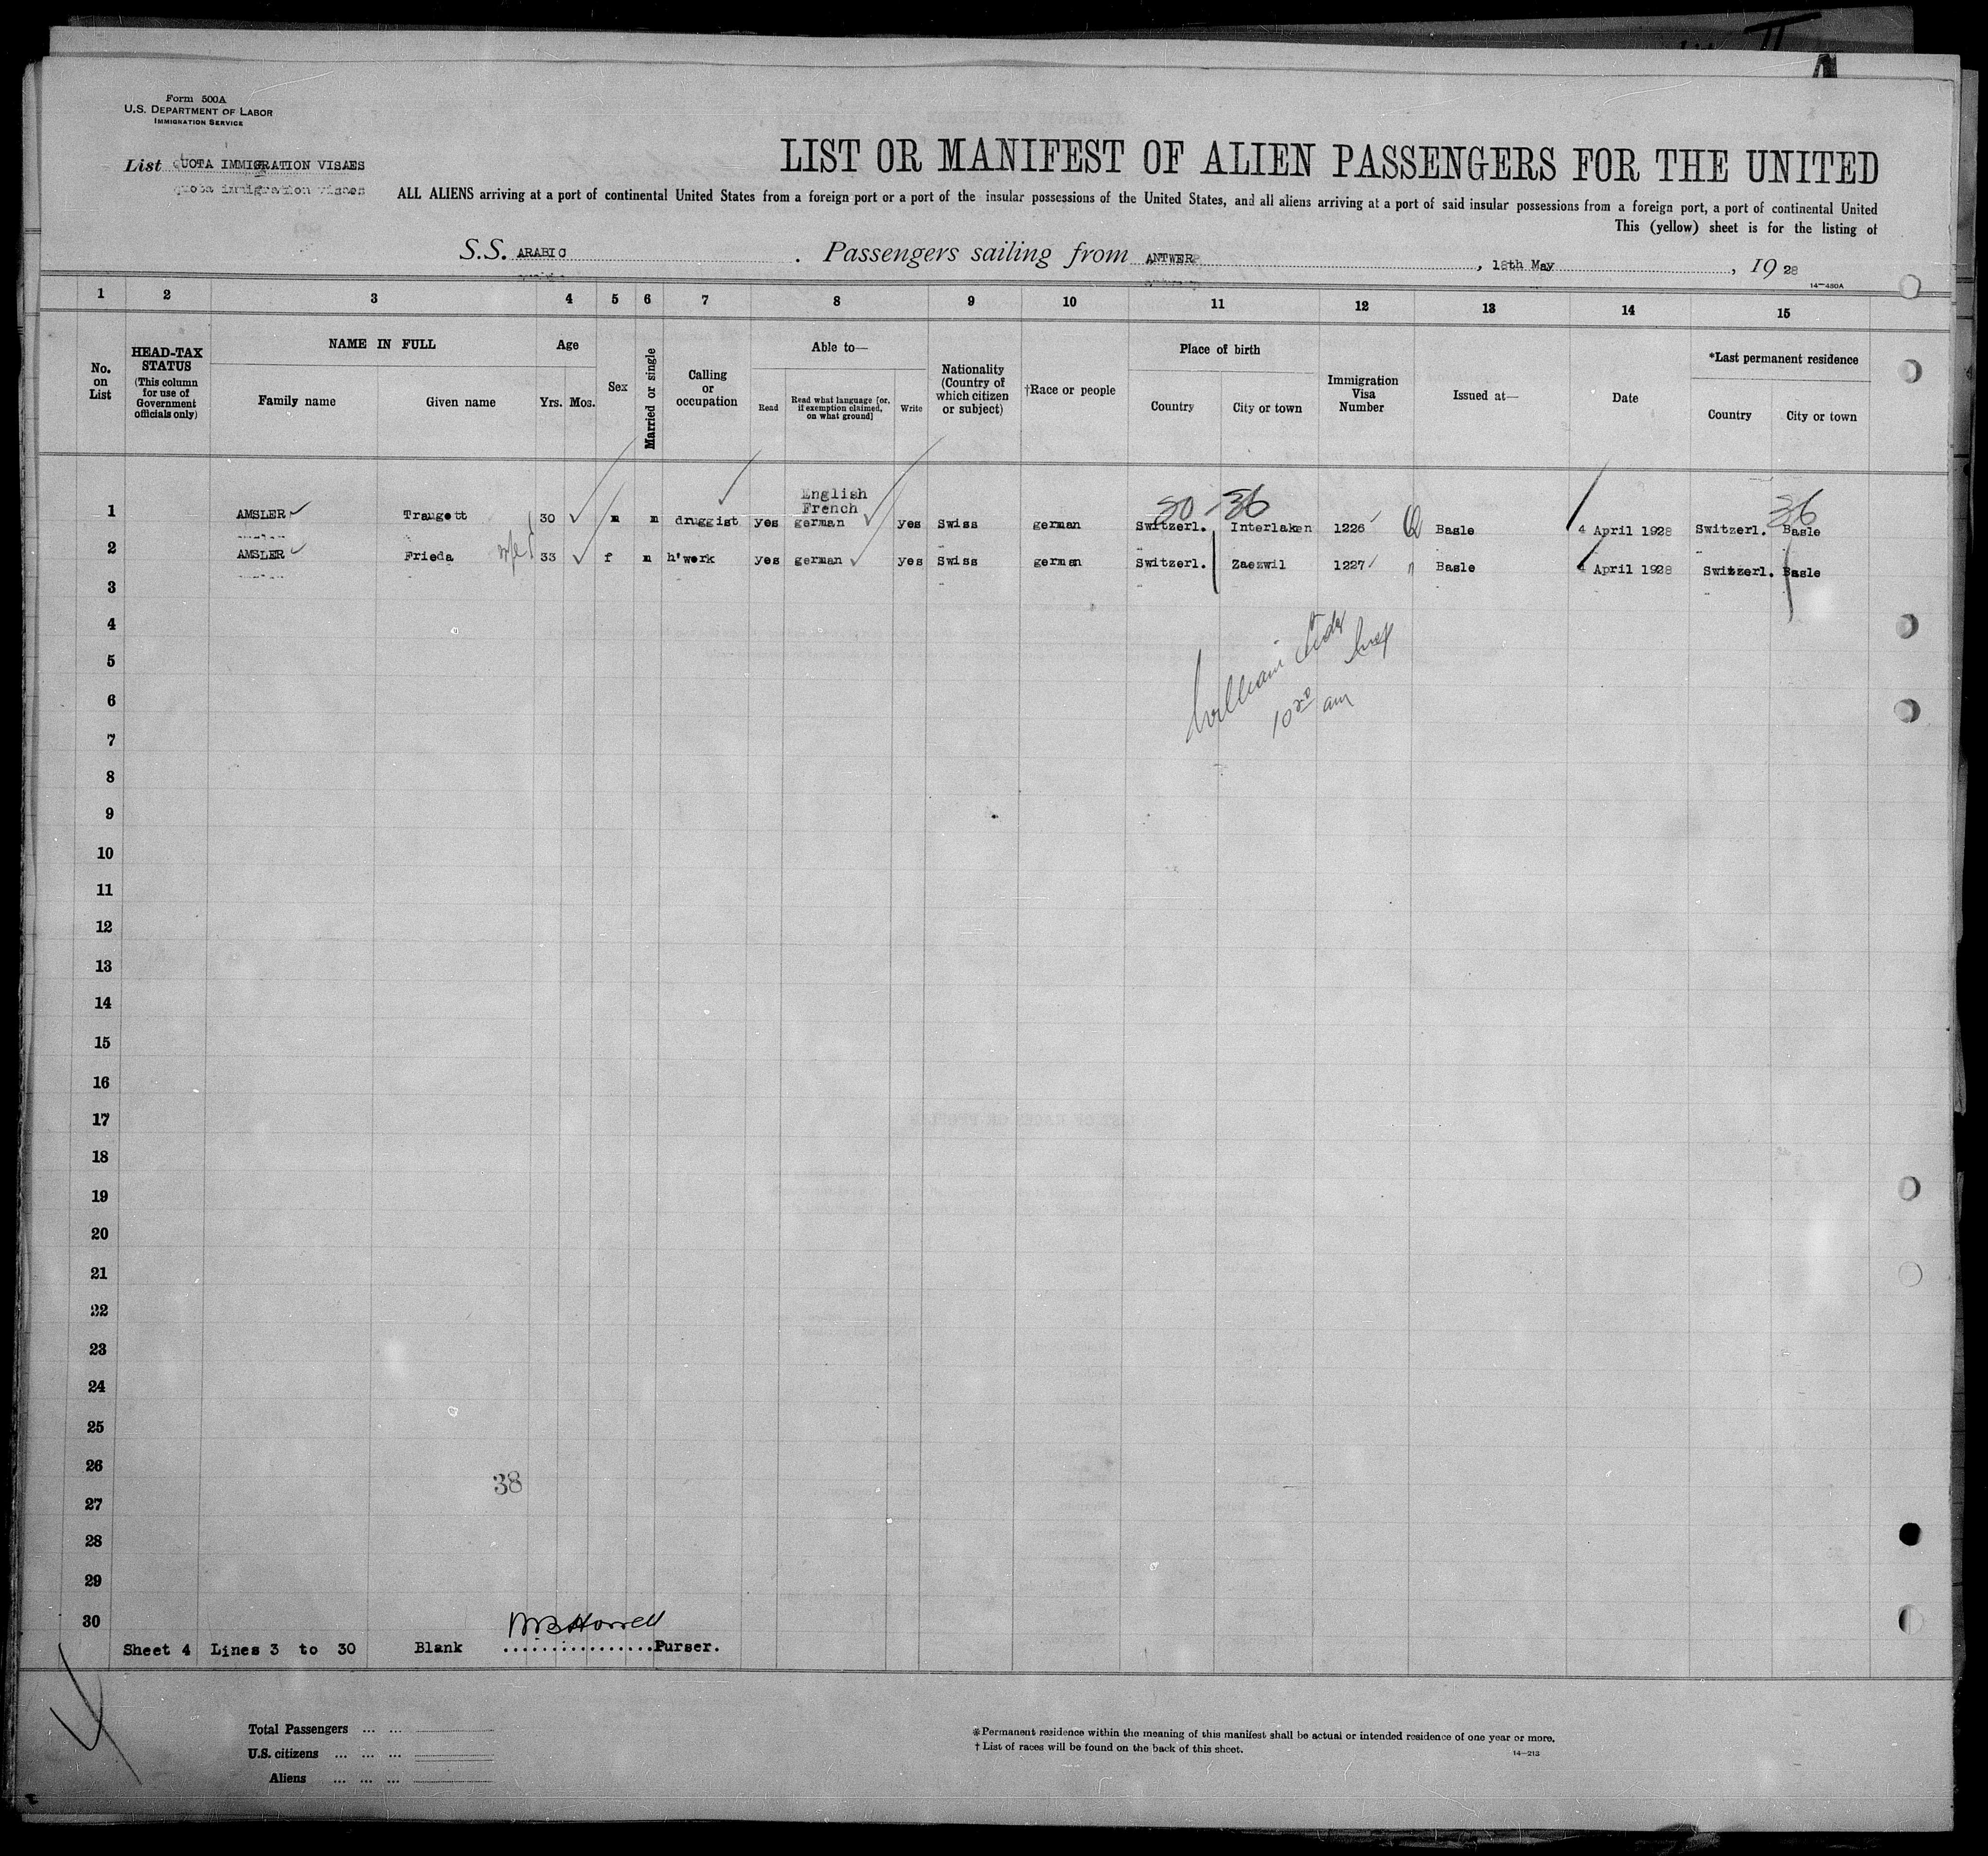 Form 500A
U.S. DEPARTMENT OF LABOR
IMMIGRATION SERVICE
List QUOTA IMMIGRATION VISAES
LIST OR MANIFEST OF ALIEN PASSENGERS FOR THE UNITED
ALL ALIENS arriving at a port of continental United States from a foreign port or a port of the insular possessions of the United States, and all aliens arriving at a port of said insular possessions from a foreign port, a port of continental United
This (yellow) sheet is for the listing of
S.S. ARABIC. Passengers sailing from ANTWERP, 18th May, 1928
14—480A
1 2 3 4 5 6 7 8 9 10 11 12 13 14 15
No. on List
HEAD-TAX STATUS (This column for use of Government officials only)
NAME IN FULL
Family name Given name
Age
Yrs. Mos.
Sex
Married or single
Calling or occupation
Able to—
Read
Read what language [or, if exemption claimed, on what ground]
Write
Nationality (Country of which citizen or subject)
†Race or people
Place of birth
Country City or town
Immigration Visa Number
Issued at—
Date
*Last permanent residence
Country City or town
30-36 36
English
French
1 AMSLER Traugott 30 m m druggist yes german yes Swiss german Switzerl. Interlaken 1226 Q Basle 4 April 1928 Switzerl. Basle
2 AMSLER Frieda wife 33 f m h'work yes german yes Swiss german Switzerl. Zaezwil 1227 " Basle 4 April 1928 Switzerl. Basle
3
4
5
William
10 30 am
6
7
8
9
10
11
12
13
14
15
16
17
18
19
20
21
22
23
24
25
26
38
27
28
29
30
Sheet 4 Lines 3 to 30 Blank ................Purser.
Total Passengers ... ...
U.S. citizens ... ... ...
Aliens ... ... ...
*Permanent residence within the meaning of this manifest shall be actual or intended residence of one year or more.
† List of races will be found on the back of this sheet.
14—213